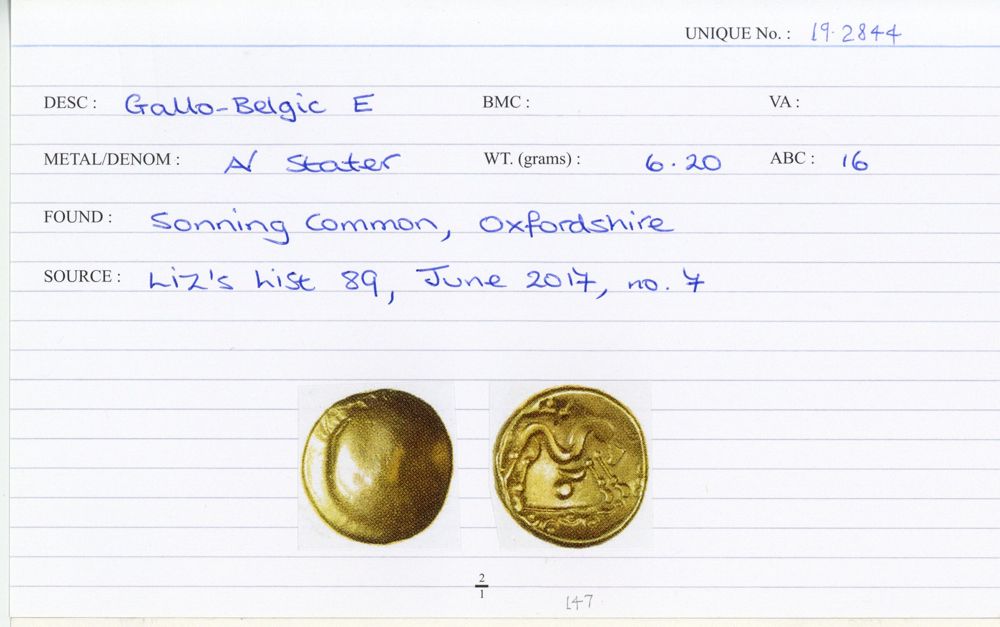 UNIQUE No. : 19.2844
DESC : Gallo-Belgic E BMC : VA :
METAL/DENOM : A/ Stater WT. (grams) : 6.20 ABC : 16
FOUND : Sonning Common, Oxfordshire
SOURCE : Liz's List 89, June 2017, no. 7
2
1
147